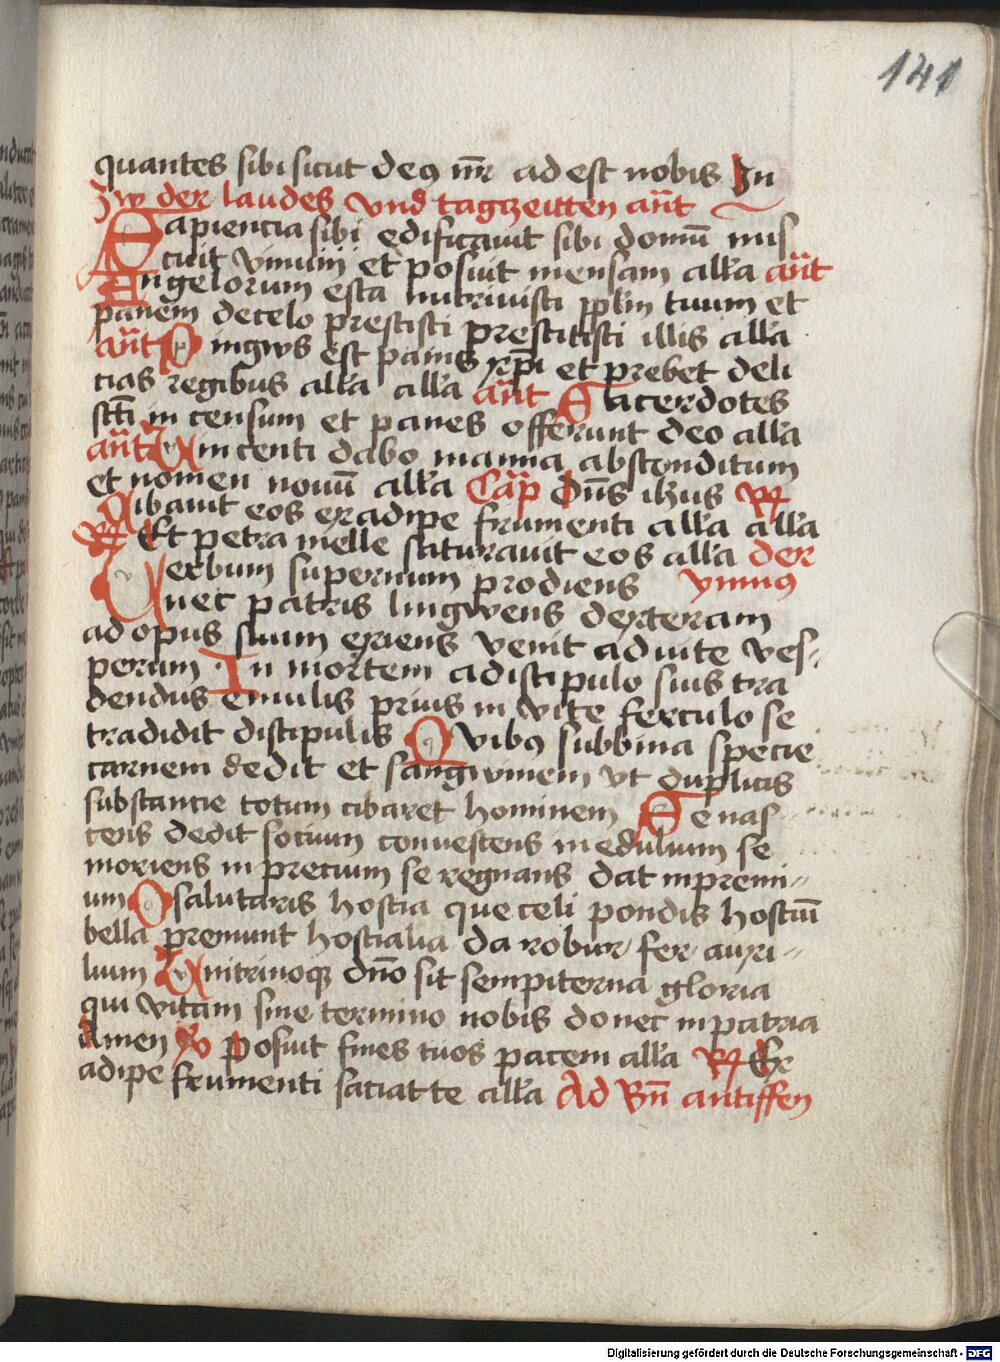 141
quantes sibi sicut deꝰ nr̄ ad est nobis In
zw der laudes vnd tagzeitten an̄t
Sapiencia sibi edificauit sibi domū mis
cuit vinum et posuit mensam all'a an̄t
Angelorum esca nutriuisti pp̄lm tuum et
panem decelo prestisti prestitisti illis all'a
an̄t Pingws est panis xp̄i et prebet deli
cias regibus all'a all'a an̄t Sacerdotes
sc̄ti in censum et panes offerunt deo all'a
an̄t Vincenti dabo manna absconditum
et nomen nouū all'a Cap̄ Dn̄s ih̄us R
Cibauit eos exadipe frumenti all'a all'a
Et petra melle saturauit eos all'a der
Verbum supernum prodiens ymnus
nec patris lingwens dexteram
ad opus suum exiens venit ad uite ves-
peram In mortem adiscipulo suis tra
dendus emulis prius in vite ferculo se
tradidit discipulis Quibꝰ subbina specie
carnem dedit et sangwinem vt duplicis
substancie totum cibaret hominem Se nas-
cens dedit socium conuescens in edulium se
moriens in precium se regnans dat in premi-
um O salutaris hostia que celi pandis hostiū
bella premunt hostialia da robur fer auxi-
lium Vnitrinoqꝫ dn̄o sit sempiterna gloria
qui vitam sine termino nobis donet in patria
Amen V posuit fines tuos pacem all'a R Ex
adipe frumenti saciat te all'a Ad Bn̄ antiffen
Digitalisierung gefördert durch die Deutsche Forschungsgemeinschaft - DFG